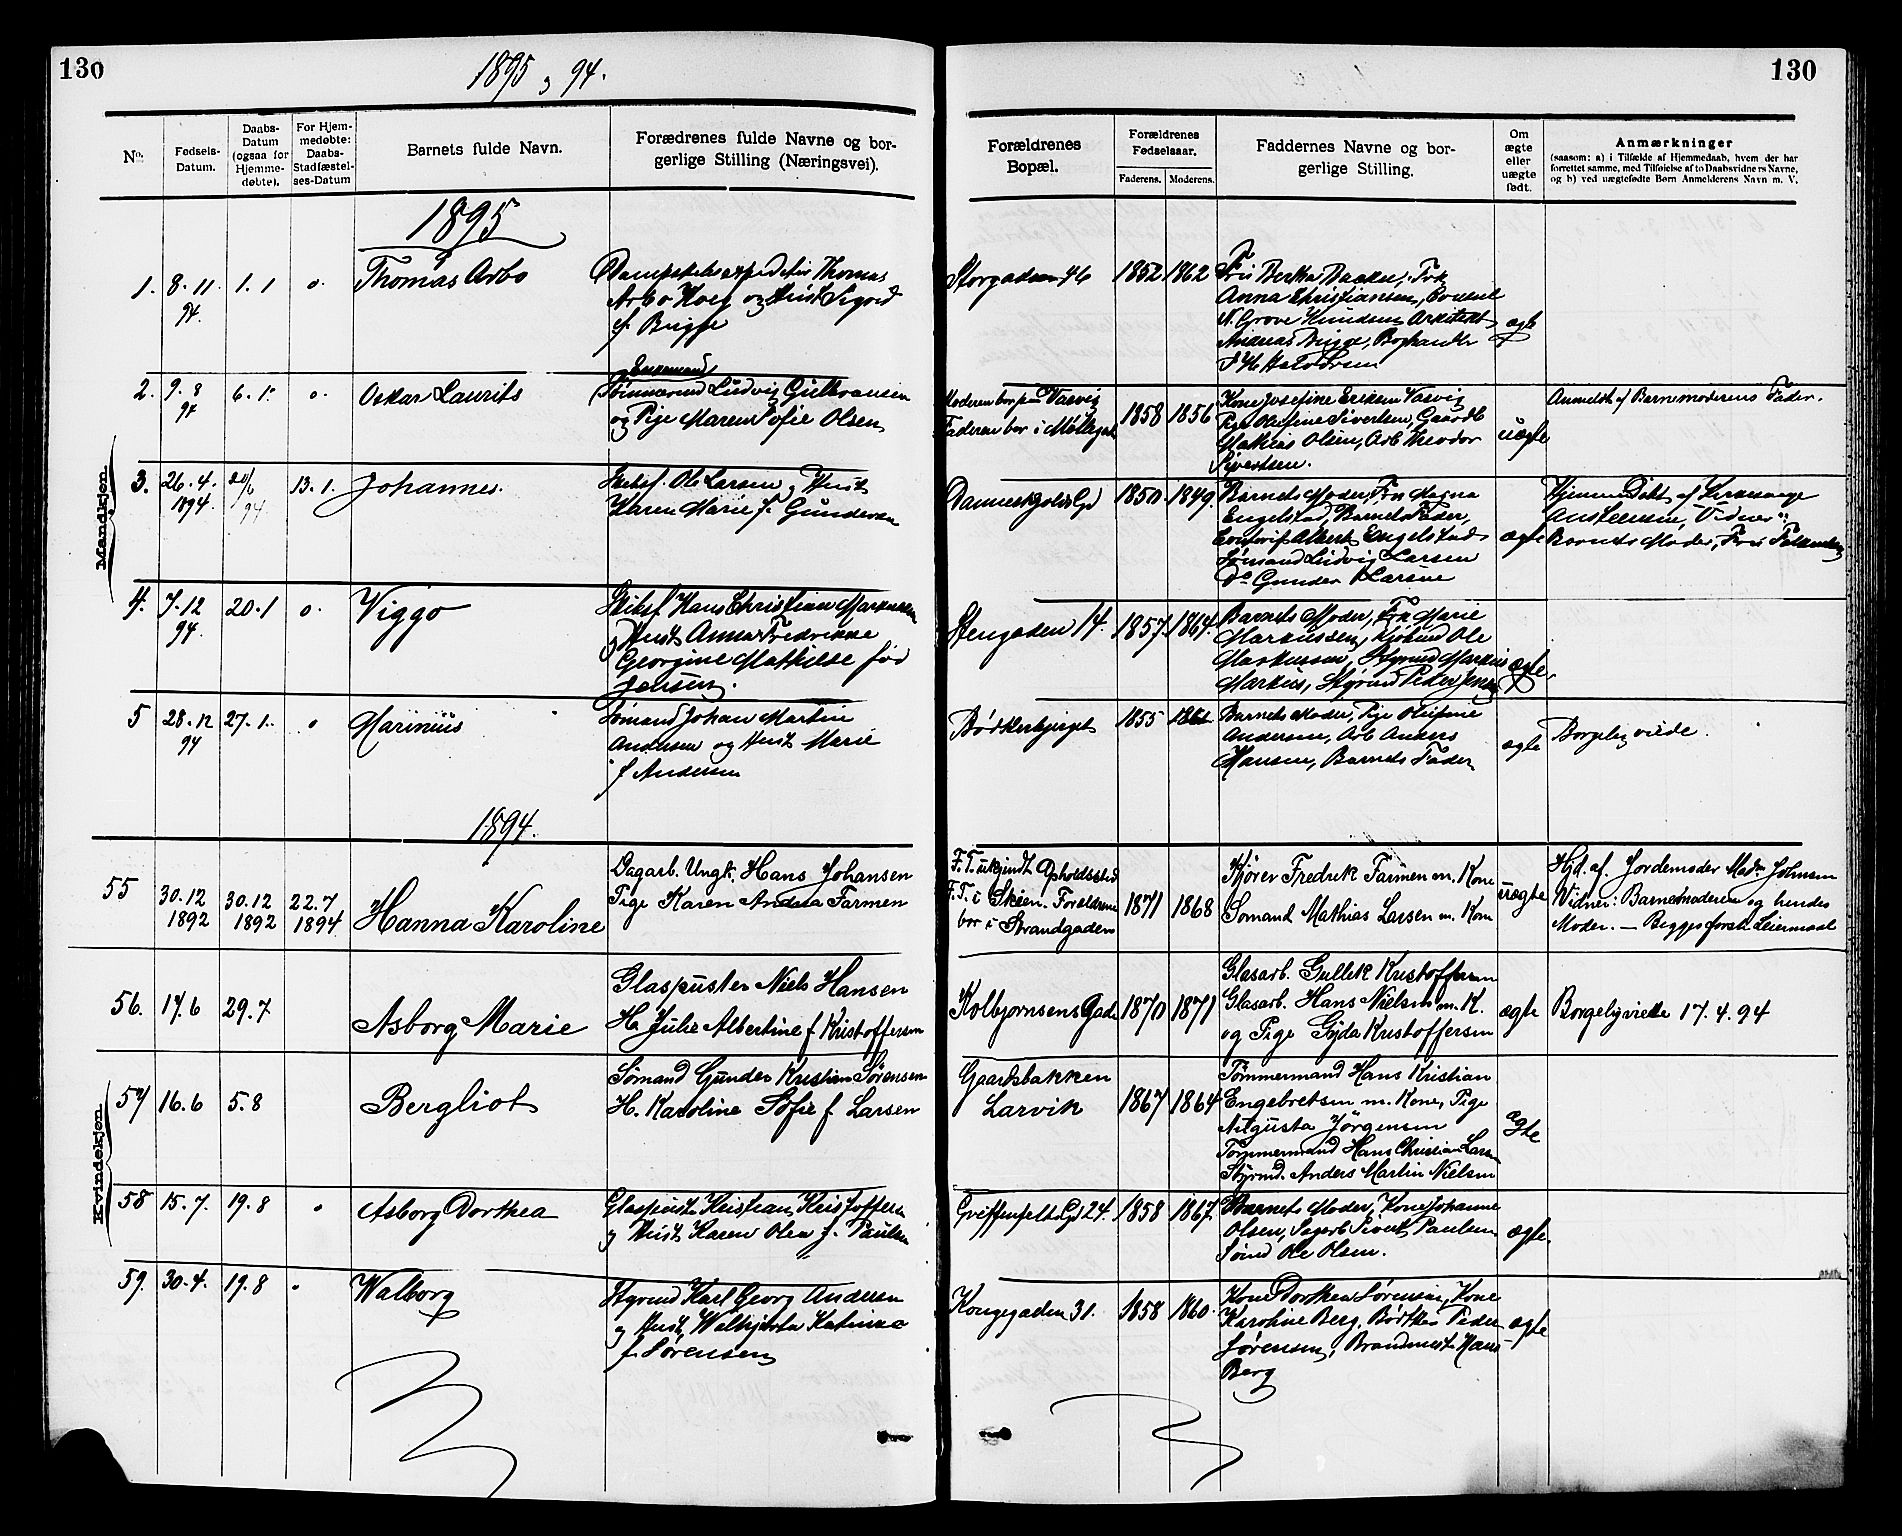 130
1895 & 94.
130
No.
Fødsels-
Datum.
Daabs-
Datum
(ogsaa for
Hjemme-
døbte).
For Hjem-
medøbte:
Daabs-
Stadfæstel-
ses-Datum
Barnets fulde Navn.
Forædrenes fulde Navne og bor-
gerlige Stilling (Næringsvei).
Forældrenes
Bopæl.
Forældrenes
Fødselsaar.
Faderens.
Moderens.
Faddernes Navne og bor-
gerlige Stilling.
Om
ægte
eller
uægte
født.
Anmærkninger
(saasom: a) i Tilfælde af Hjemmedaab, hvem der har
forrettet samme, med Tilføielse af to Daabsvidners Navne,
og b) ved uægtefødte Børn Anmelderens Navn m. V.
1895
Mandkjøn
1.
8.11
94.
1.1
o.
Thomas Arbo
Thomas
Arbo Hoeg og Hust Sigrid
f. Brigge
Storgaden 46
1852
1862
Anna Christiansen, Consul
N. Grove Knudsen Arkitekt
Andreas Bugge,
ægte
2.
9.8
94
6.1.
o.
Oskar Laurits
Tømmermd Ludvig Gulbransen
og Pige Maren Sofie Olsen
Moderen bor paa Vasvig
Faderen bor i Møllegat
1858
1856
Kone Josefine Eriksen Vasvig
Pige Olefine Sivertsen, Gaardb
Mathias Olsen, Arb Theodor
Sivertsen.
uægte
Anmeldt af Barnemoderens Fader.
3.
26.4.
1894.
94
13.1.
Johannes.
Ole Larsen, Hust
Karen Marie f. Gundersen
Danneskjolds Gd
1850.
1849.
Barnets Moder, Frk Magna
Engelstad, Barnets Fader,
Albert Engelstad
Sømand Ludvig Larsen
Do Gunder Larsen
ægte
Hjemmedøbt af
Vidner:
Barnets Moder, Fru
4.
7.12
94.
20.1
o.
Viggo
Hans Christian Markussen
og Hust Anna Fredrikke
Georgine Mathilde fød
Jensen.
Stengaden 14.
1857.
1864.
Barnets Moder, Frk Marie
Markussen, Ole
Markussen, Styrmd Markus
Markus, Styrmd Peder Jensen
ægte.
5
28.12
94
27.1.
o
Marinius
Sømand Johan Martin
Andersen og Hust Marie
f Andersen
Bødkerbjerget
1855
Barnets Moder, Pige Olefine
Andersen, Arb Anders
Hansen, Barnets Fader
ægte
Borgerlig viede.
1894.
Kvindekjøn.
55
30.12
1892
30.12
1892
22.7
1894
Hanna Karoline
Dagarb. Ungk. Hans Johansen
Pige Karen Andrea Farmen
F.T. ukjendt Opholdssted
F.T. i Skien. Forældrene
bor i Strandgaden
1871
1868
Kjører Fredrik Farmen m. Kone
Sømand Mathias Larsen m. Kone
uægte
Hjd. af Jordemoder Mad. Johnsen
Vidner: Barnemoderen og hendes
Moder. — Begges første Leiermaal
56.
17.6
29.7
Asborg Marie
Glaspuster Niels Hansen
H. Julie Albertine f Kristoffersen
Kolbjørnsens Gade
1870
1871
Glasarb. Gullik Kristoffersen
Glasarb. Hans Nielsen m. K.
og Pige Gyda Kristoffersen
ægte
Borgerlig viede 17.4.94
57
16.6
5.8
Bergliot
Sømand Gunder Kristian Sørensen
H. Karoline Sofie f Larsen
Gaardsbakken
Larvik
1867
1864
Tømmermand Hans Kristian
Engebretsen m. Kone, Pige
Augusta Jørgensen
Tømmermand Hans Christian Larsen
Styrmd. Anders Martin Nielsen
ægte
58
15.7.
19.8
o
Asborg Dorthea
Glaspust. Kristian Kristoffersen
og Hust Karen Olea f. Paulsen
Griffenfelds Gd 24.
1858
1867.
Barnets Moder, Kone Johanne
Olsen, Sagarb Sivert Paulsen
Sømd Ole Olsen.
ægte.
59.
30.4.
19.8
o
Walborg
Styrmd Karl Georg Andersen
og Hust Valkjerta Katinka
f. Sørensen
Kongegaden 31.
1858
1860.
Kone Dorthea Sørensen, Kone
Karoline Berg, Bødker Peder
Sørensen, Brandmest. Hans
Berg
ægte